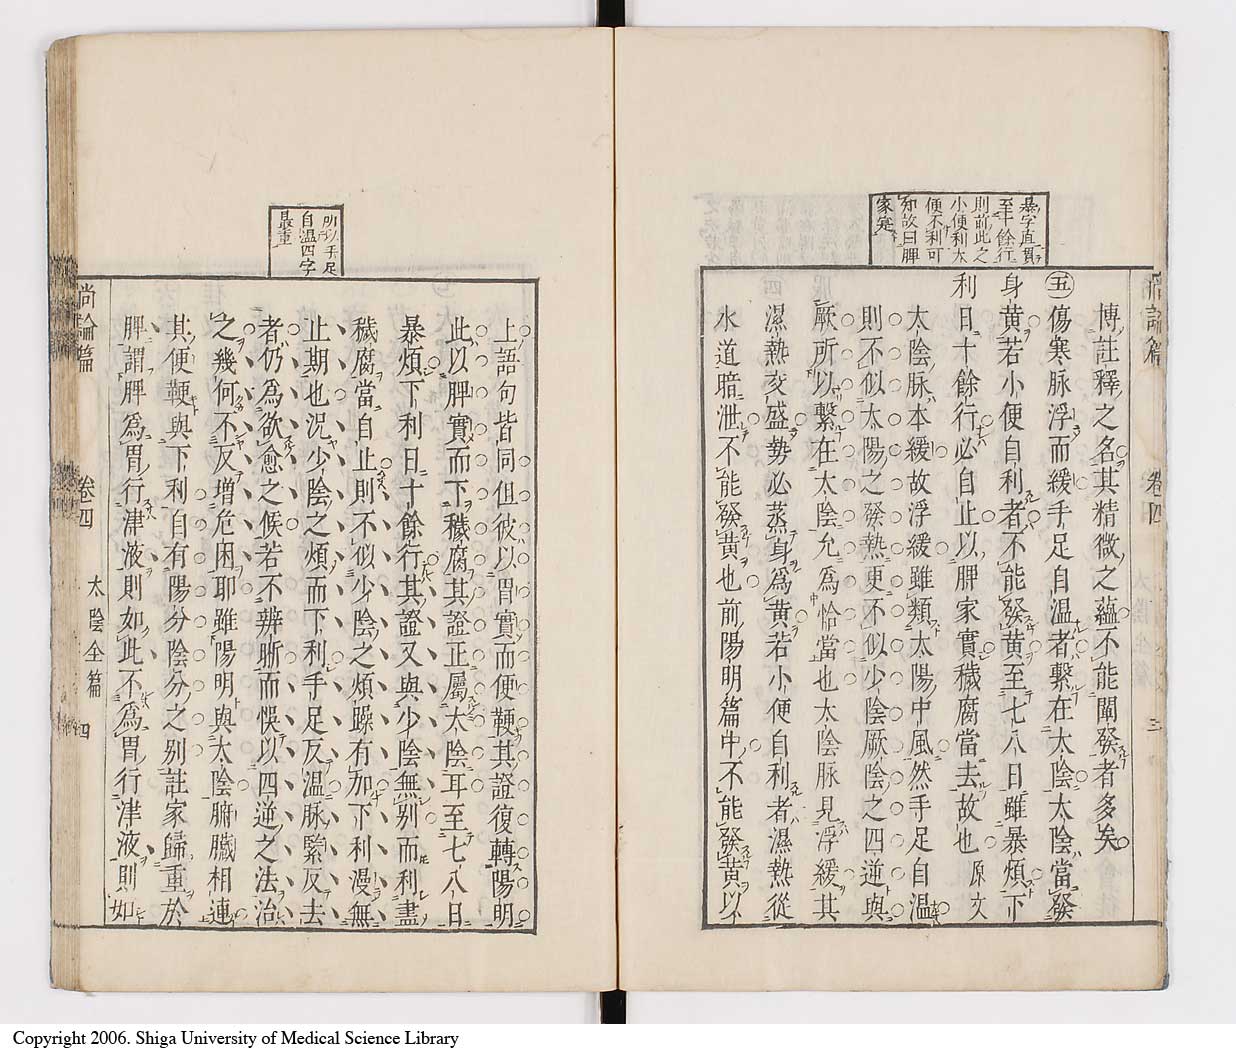 暴字直貫
至十餘行
則前此之
小便利大
便不利可
知故曰脾
家寔
尚論篇
卷四
三
博註釋之名其精微之蘊不能闡發者多矣
㊄傷寒脉浮而緩手足自溫者繫在太陰太陰當發
身黃若小便自利者不能發黃至七八日雖暴煩下
利日十餘行必自止以脾家實穢腐當去故也 原文
太陰脉本緩故浮緩雖類太陽中風然手足自溫
則不似太陽之發熱更不似少陰厥陰之四逆與
厥所以繫在太陰允為恰當也太陰脉見浮緩其
濕熱交盛勢必蒸身為黃若小便自利者濕熱從
水道暗泄不能發黃也前陽明篇中不能發黃以
所以手足
自溫四字
最重
上語句皆同但彼以胃實而便鞕其證復轉陽明
此以脾實而下穢腐其證正屬太陰耳至七八日
暴煩下利日十餘行其證又與少陰無别而利盡
穢腐當自止則不似少陰之煩躁有加下利漫無
止期也况少陰之煩而下利手足反溫脉緊反去
者仍為欲愈之候若不辨晰而悞以四逆之法治
之幾何不反增危困耶雖陽明與太陰腑臟相連
其便鞕與下利自有陽分陰分之别註家歸重於
脾謂脾為胃行津液則如此不為胃行津液則如
尚論篇
卷四
太陰全篇
四
Copyright 2006. Shiga University of Medical Science Library